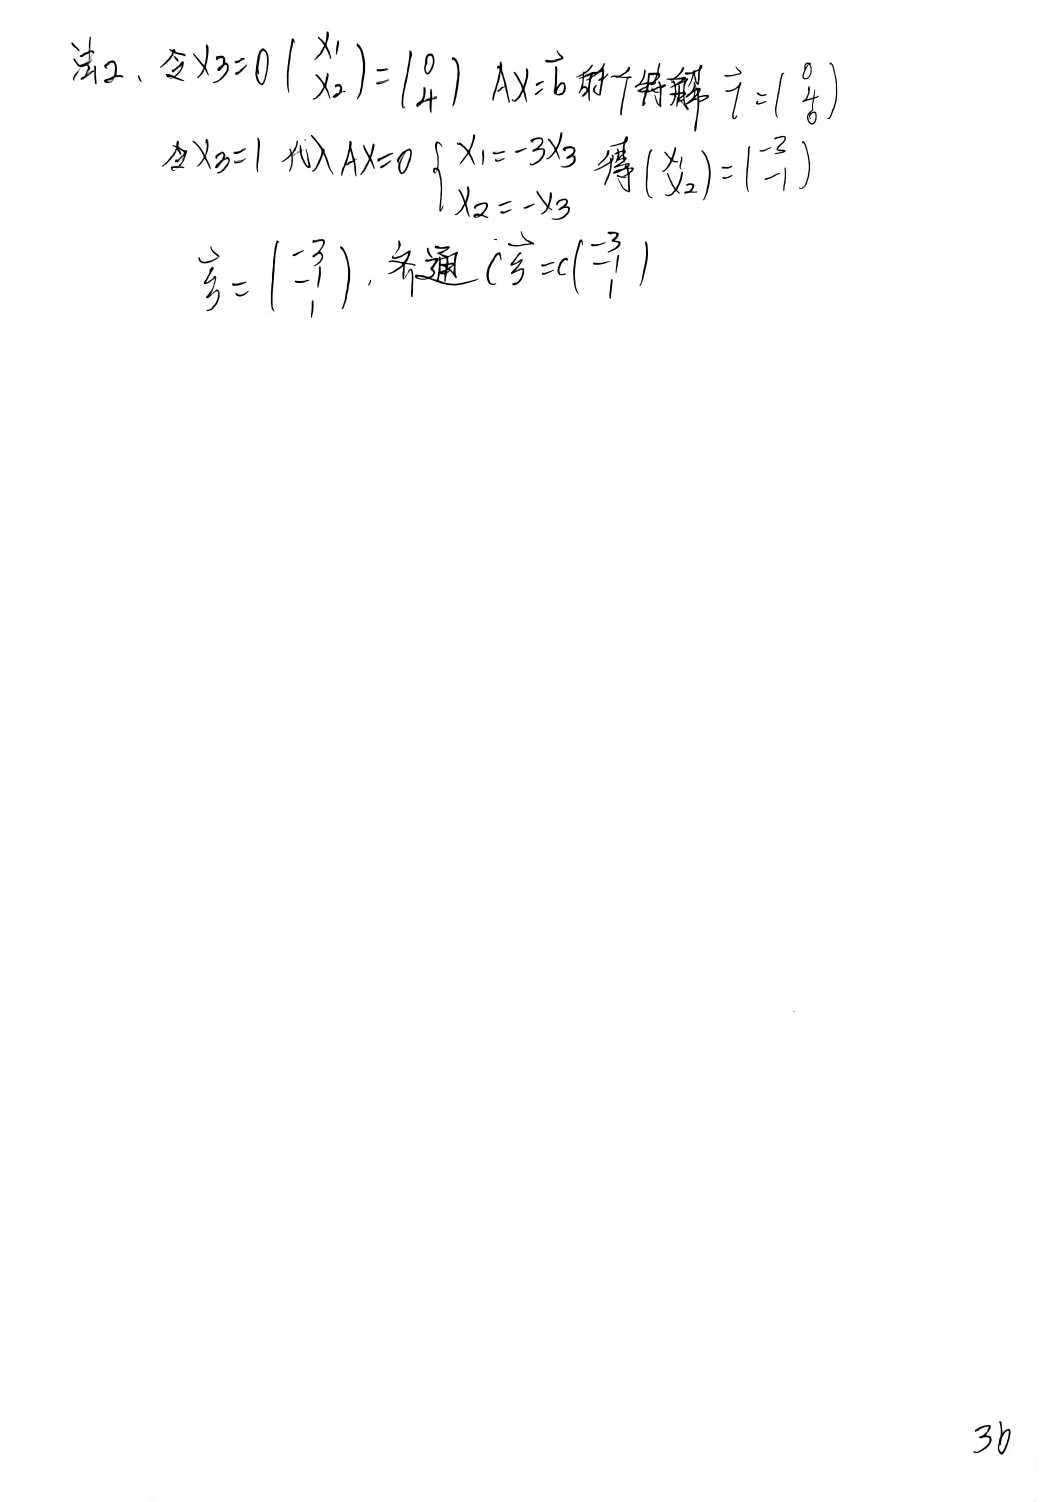 法2、令X3=0 (X1 X2)=(0 4) AX=b⃗ 的个特解 η⃗=(0 4 0)
令X3=1 代入AX=0 {X1=-3X3 X2=-X3 得(X1 X2)=(-3 -1)
ξ⃗=(-3 -1 1). 齐通 Cξ⃗=C(-3 -1 1)
36